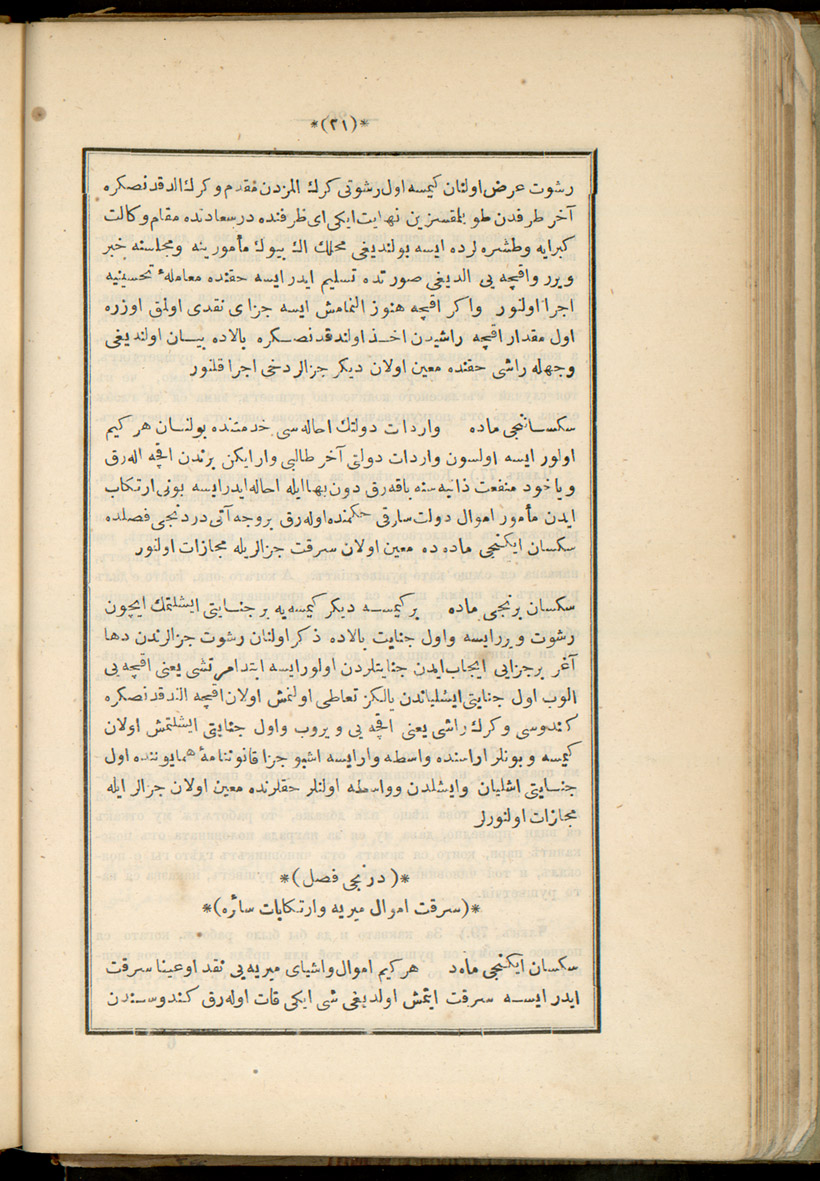 *(٢١)*
رشوت عرض اولنان كيمسه اول رشوتى كرك المزدن مقدم و كرك الدقدنصكره
آخر طرفدن طويلمقسزين نهايت ايكى اى ظرفنده درسعادتده مقام وكالت
كبرايه وطشره لرده ايسه بولنديغى محلك اك بيوك مأمورينه ومجلسنه خبر
ويرر واقچه يى الديغى صورتده تسليم ايدر ايسه حقنده معاملهٔ تحسينيه
اجرا اولنور واكر اقچه هنوز النمامش ايسه جزاى نقدى اولمق اوزره
اول مقدار اقچه راشيدن اخذ اولندقدنصكره بالاده بيان اولنديغى
وجهله راشى حقنده معين اولان ديكر جزالر دخى اجرا قلنور
سكساننجى ماده واردات دولتك احاله سى خدمتنده بولنان هر كيم
اولور ايسه اولسون واردات دولتى آخر طالبى وار ايكن برندن اقچه اله رق
و ياخود منفعت ذاتيه سنه باقه رق دون بها ايله احاله ايدرايسه بونى ارتكاب
ايدن مأمور اموال دولت سارقى حكمنده اوله رق بروجه آتى دردنجى فصلده
سكسان ايكنجى ماده ده معين اولان سرقت جزالريله مجازات اولنور
سكسان برنجى ماده بر كيمسه ديكر كيمسه يه بر جنايتى ايشلتمك ايچون
رشوت ويررايسه واول جنايت بالاده ذكر اولنان رشوت جزالرندن دها
آغر برجزايى ايجاب ايدن جنايتلردن اولورايسه ابتدا مرتشى يعنى اقچه يى
الوب اول جنايتى ايشلياندن يالكز تعاطى اولنمش اولان اقچه الندقدنصكره
كندوسى وكرك راشى يعنى اقچه يى ويروب واول جنايتى ايشلتمش اولان
كيمسه و بونلر اراسنده واسطه وارايسه اشبو جزا قانوننامهٔ همايوننده اول
جنايتى اشليان وايشلدن وواسطه اولنلر حقلرنده معين اولان جزالر ايله
مجازات اولنورلر
*(دردنجى فصل)*
*(سرقت اموال ميريه وارتكابات سائره)*
سكسان ايكنجى ماده هر كيم اموال واشياى ميريه يى نقد اوعينا سرقت
ايدر ايسه سرقت ايتمش اولديغى شى ايكى قات اوله رق كندوسندن